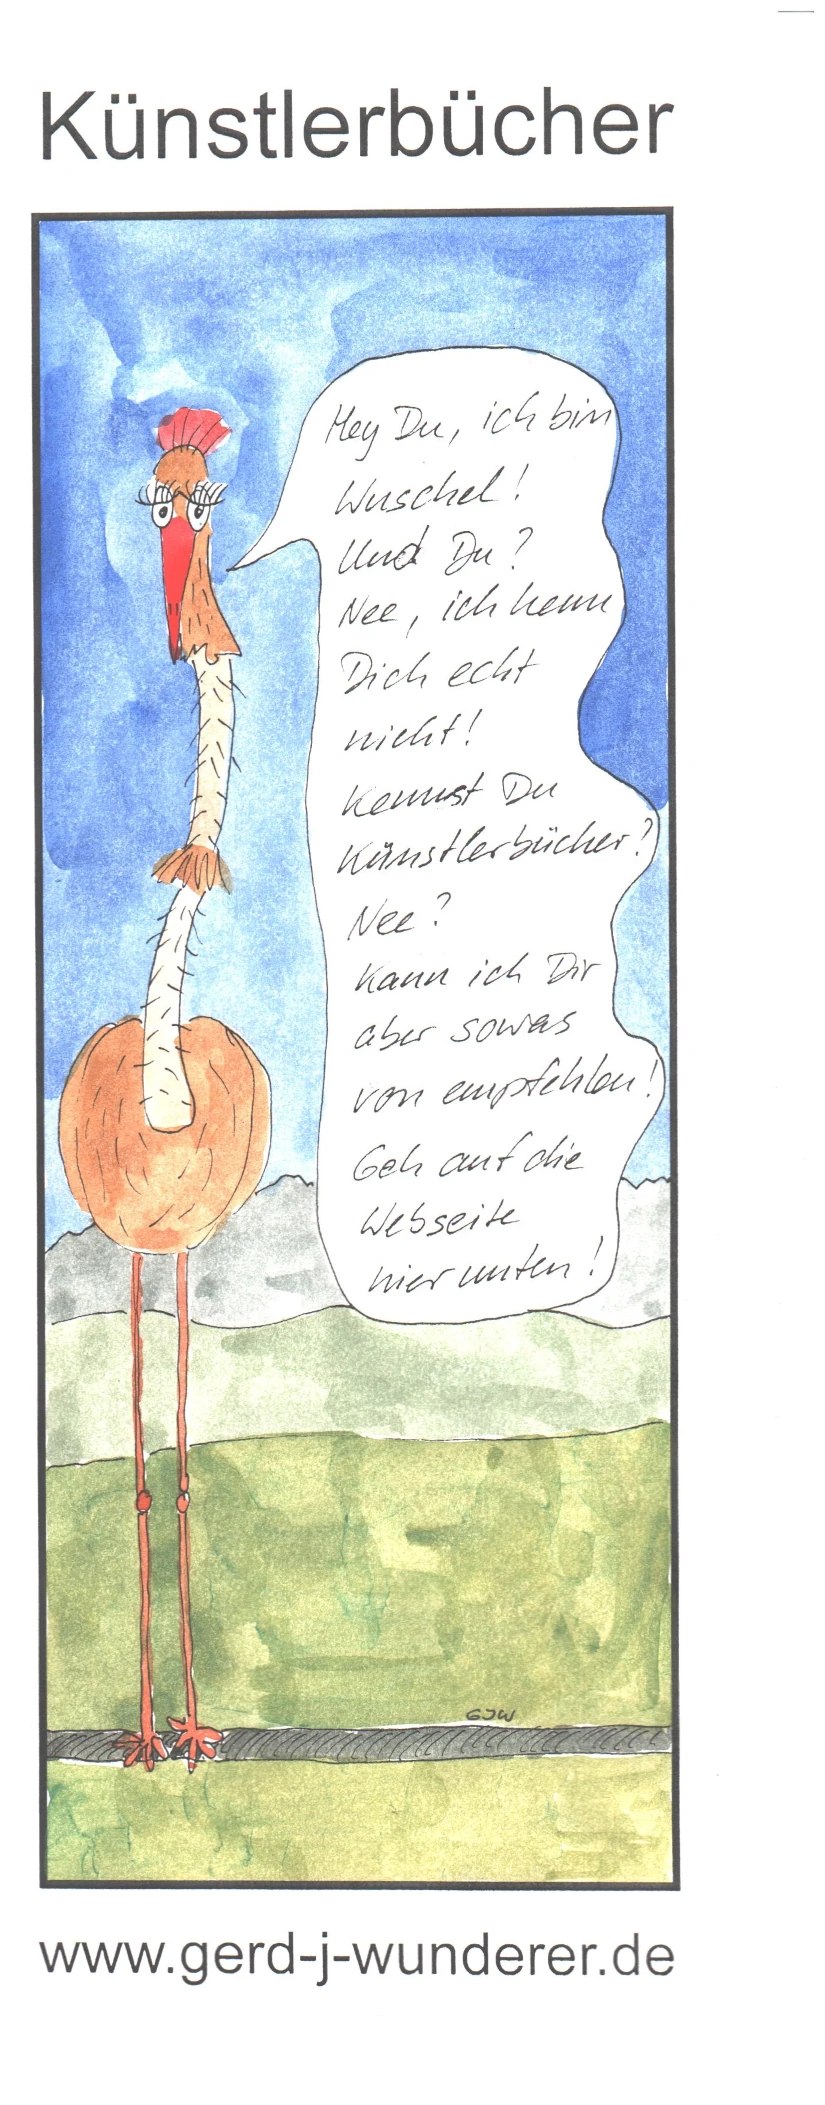 Künstlerbücher
Hey Du, ich bin
Wuschel!
Und Du?
Nee, ich kenn
Dich echt
nicht!
Kennst Du
Künstlerbücher?
Nee?
Kann ich Dir
aber sowas
von empfehlen!
Geh auf die
Webseite
hier unten!
GJW
www.gerd-j-wunderer.de